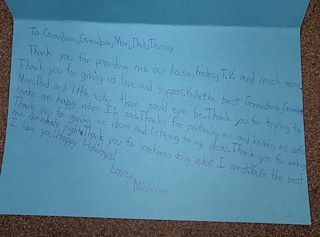 To Grandma, Grandpa, Mom, Dad, Tierney
Thank you for providing me our house, T.V. and much more.
Thank you for giving us love and support. You're the best Grandma, Grandpa
Mom, Dad and little sister there could ever be. Thank you for trying to
make me happy when I'm sad. Thanks for protecting me and keeping me safe.
Thank you for giving me ideas and listening to my ideas. Thank you for
me do what's right. Thank you for sometimes doing what I want. You're the best
I love you. Happy Holidays!
Love,
Nicholas